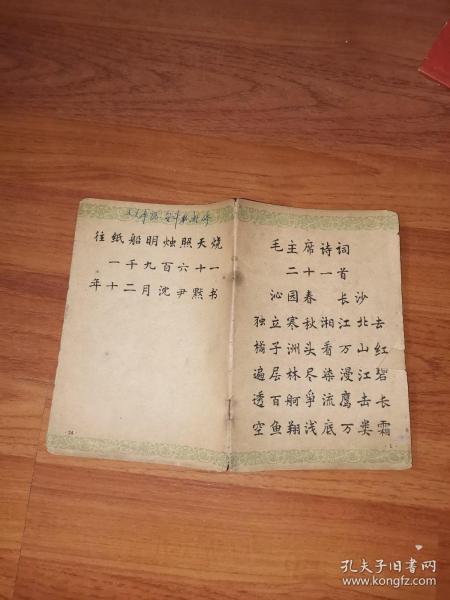 往纸船明烛照天烧
一千九百六十一
年十二月沈尹默书
24
毛主席诗词
二十一首
沁园春 长沙
独立寒秋湘江北去
橘子洲头看万山红
遍层林尽染漫江碧
透百舸争流鹰击长
空鱼翔浅底万类霜
1
孔夫子旧书网
www.kongfz.com